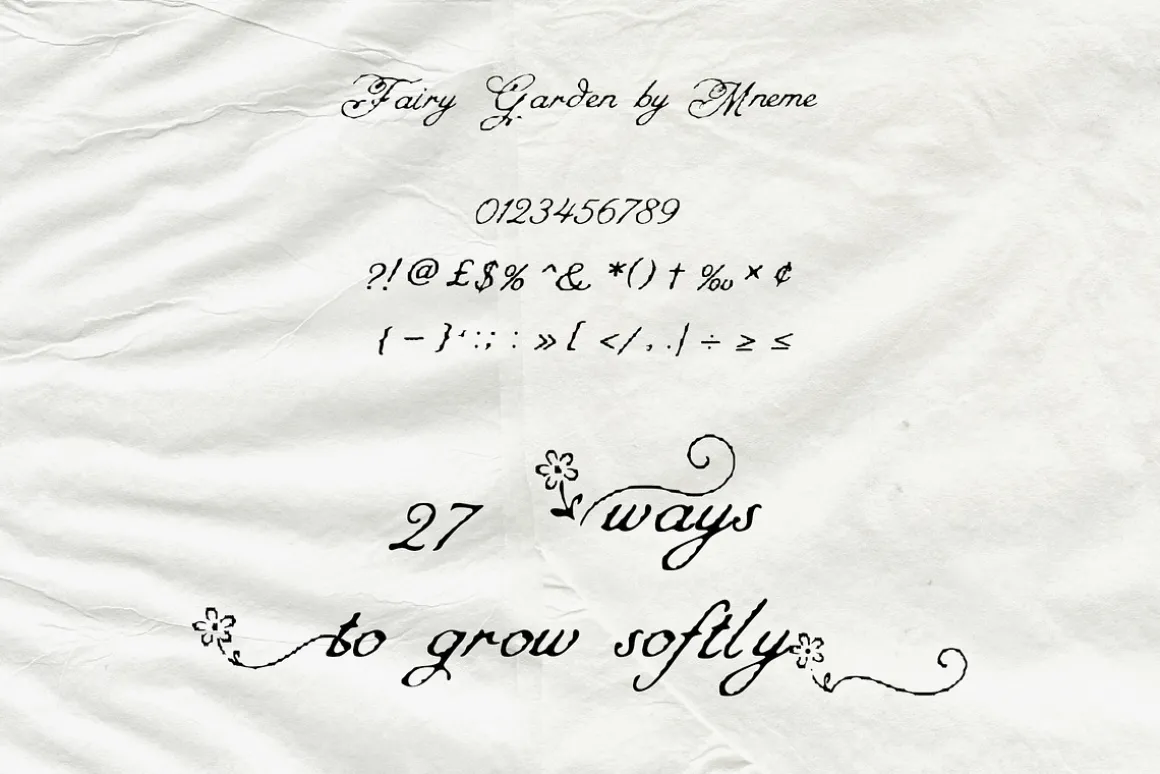 Fairy Garden by Mneme
0123456789
?!@£$%^&*()†‰×¢
{–}‘:;:»[</,.|÷≥≤
27 ways
to grow softly